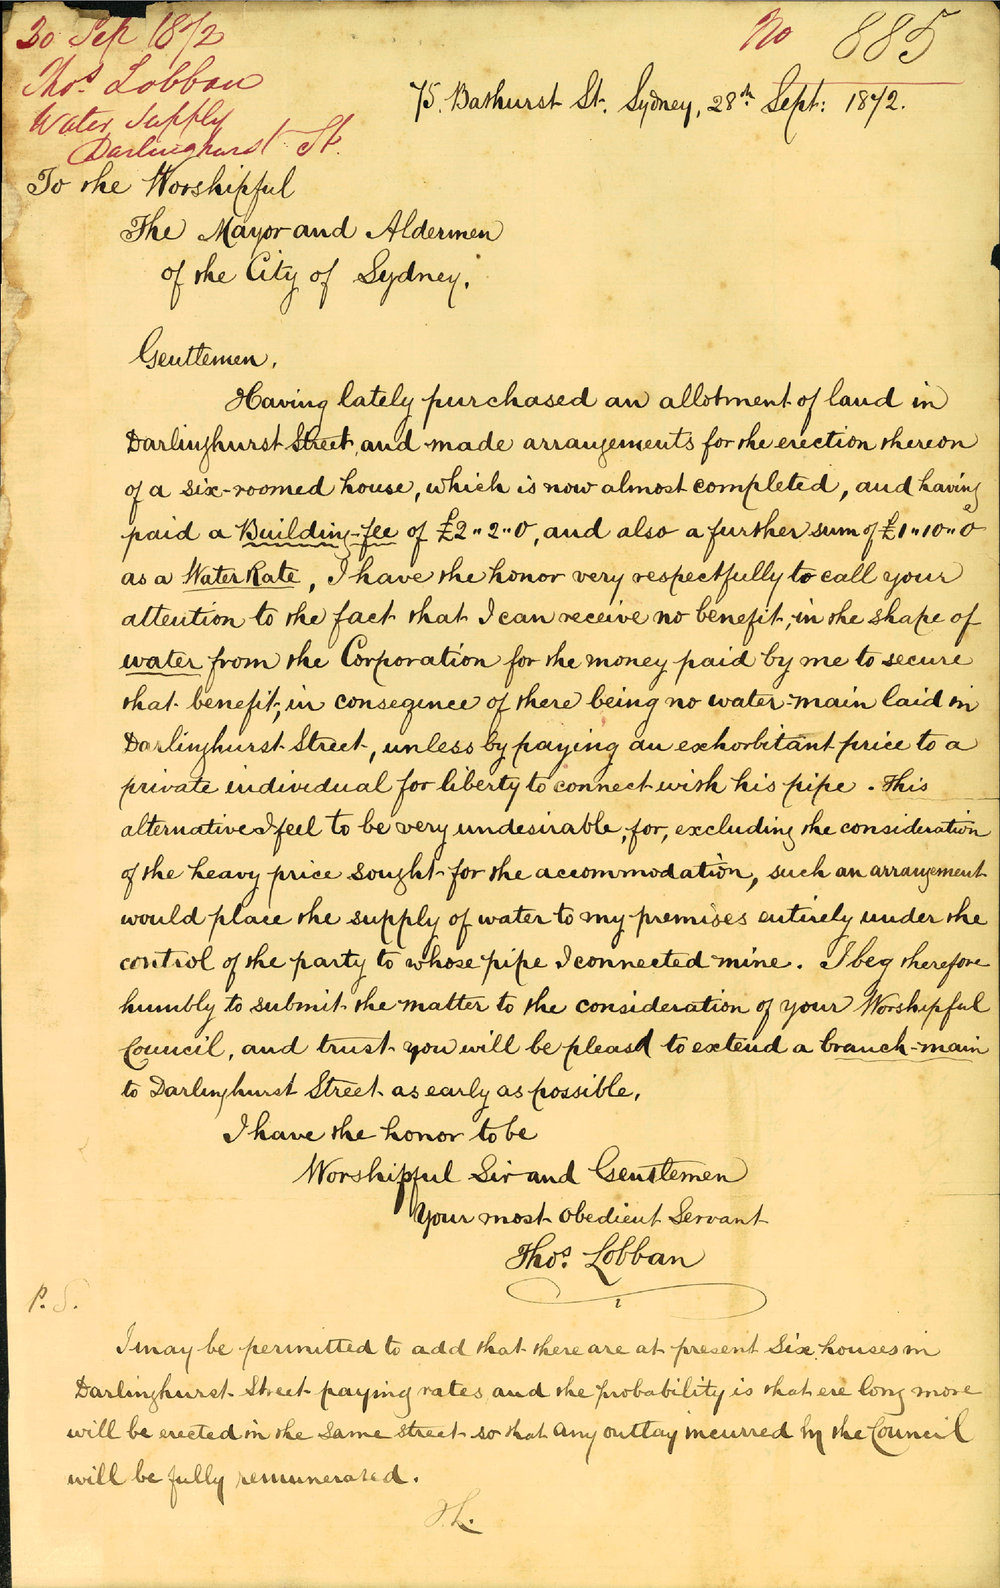 30 Sep 1872
Thos. Lobban
Water Supply
Darlinghurst St.
No 885
75, Bathurst St. Sydney, 28th Sept: 1872.
To the Worshipful
The Mayor and Aldermen
of the City of Sydney.
Gentlemen,
Having lately purchased an allotment of land in
Darlinghurst Street, and made arrangements for the erection thereon
of a six-roomed house, which is now almost completed, and having
paid a Building-fee of £2"2"0, and also a further sum of £1"10"0
as a Water Rate, I have the honor very respectfully to call your
attention to the fact that I can receive no benefit, in the shape of
water from the Corporation for the money paid by me to secure
that benefit, in conseqence of there being no water-main laid in
Darlinghurst Street, unless by paying an exhorbitant price to a
private individual for liberty to connect with his pipe. This
alternative I feel to be very undesirable, for, excluding the consideration
of the heavy price sought for the accommodation, such an arrangement
would place the supply of water to my premises entirely under the
control of the party to whose pipe I connected mine. I beg therefore
humbly to submit the matter to the consideration of your Worshipful
Council, and trust you will be pleasd to extend a branch-main
to Darlinghurst Street as early as possible.
I have the honor to be
Worshipful Sir and Gentlemen
Your most obedient Servant
Thos. Lobban
P.S.
I may be permitted to add that there are at present Six houses in
Darlinghurst Street paying rates and the probability is that ere long more
will be erected in the same street so that any outlay incurred by the Council
will be fully remunerated.
T.L.